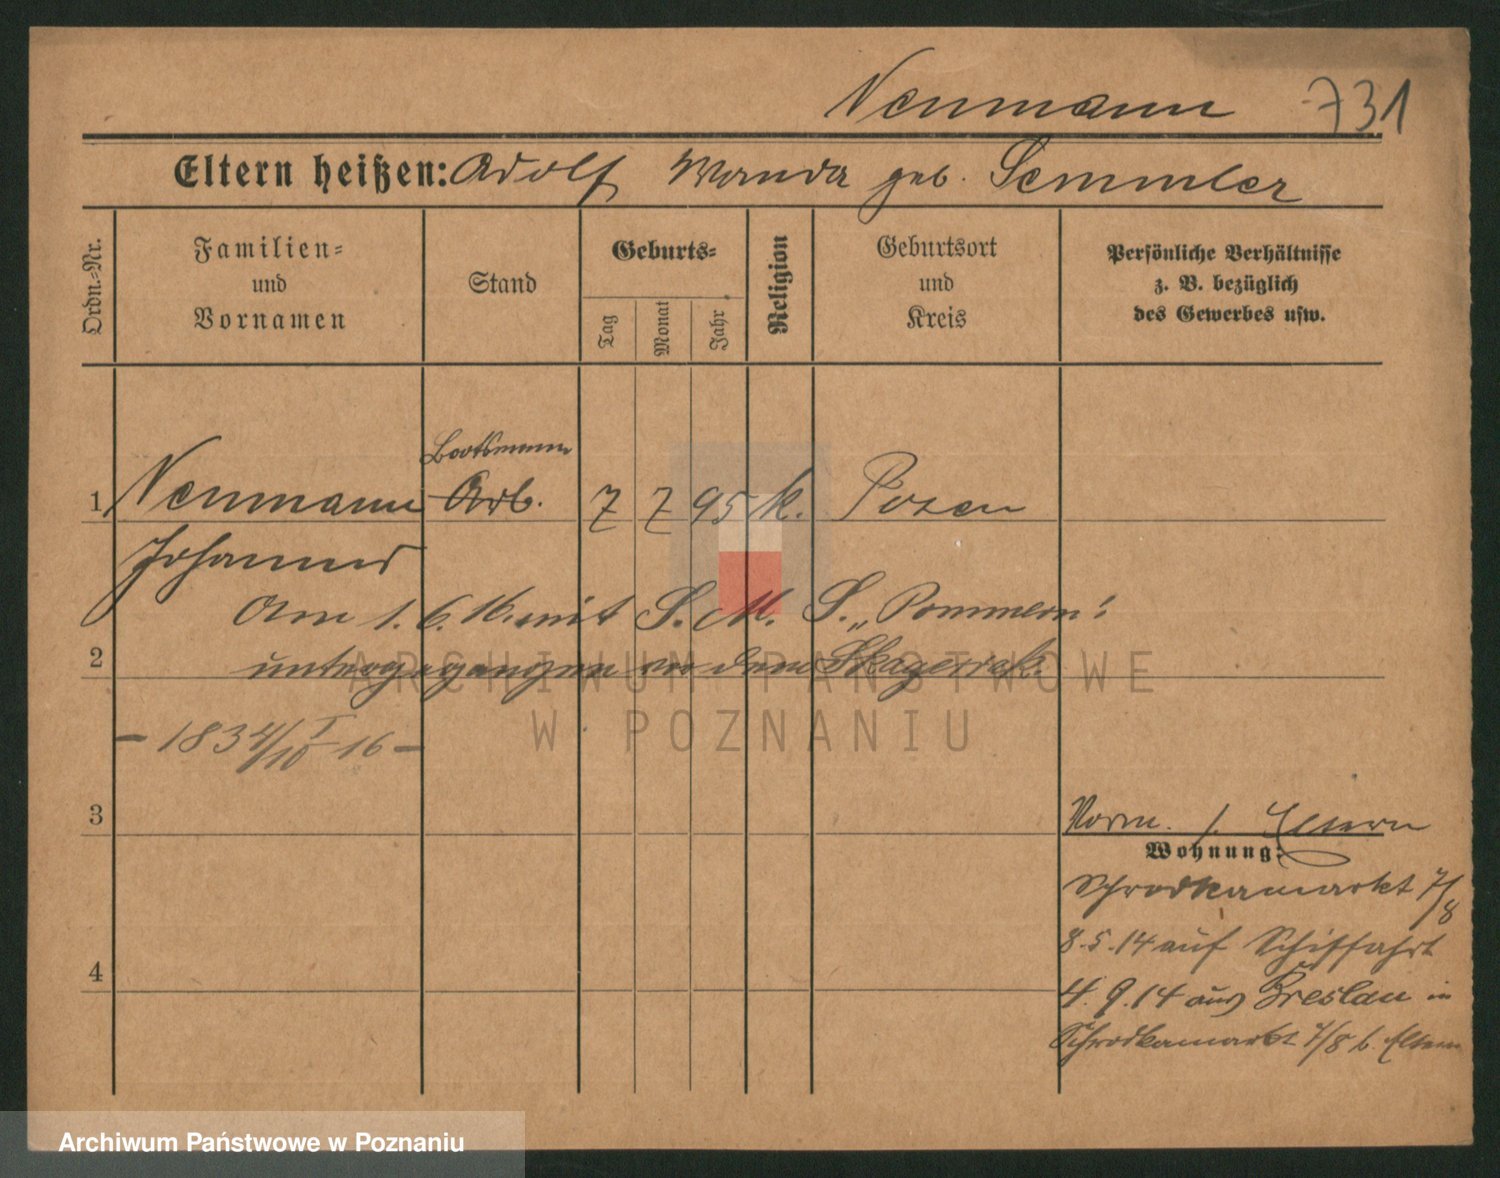 Neumann 731
Eltern heißen: Adolf Wanda geb. Semmler
Ordn.-Nr.
Familien-
und
Vornamen
Stand
Geburts-
Tag
Monat
Jahr
Religion
Geburtsort
und
Kreis
Persönliche Verhältnisse
z. B. bezüglich
des Gewerbes usw.
Bootsmann
1 Neumann Arb. 7 7 95 k. Posen
Johannes
Am 1. 6. 16. mit S. M. S. „Pommern"
2 untergegangen vor dem Skagerrak.
ARCHIWUM PAŃSTWOWE
W POZNANIU
- 1834/10 I 16 -
3
Vorm. s. Eltern
Wohnung:
Schrodkamarkt 7/8
8. 5. 14 auf Schiffahrt
4
4. 9. 14 aus Breslau in
Schrodkamarkt 7/8 b. Eltern
Archiwum Państwowe w Poznaniu